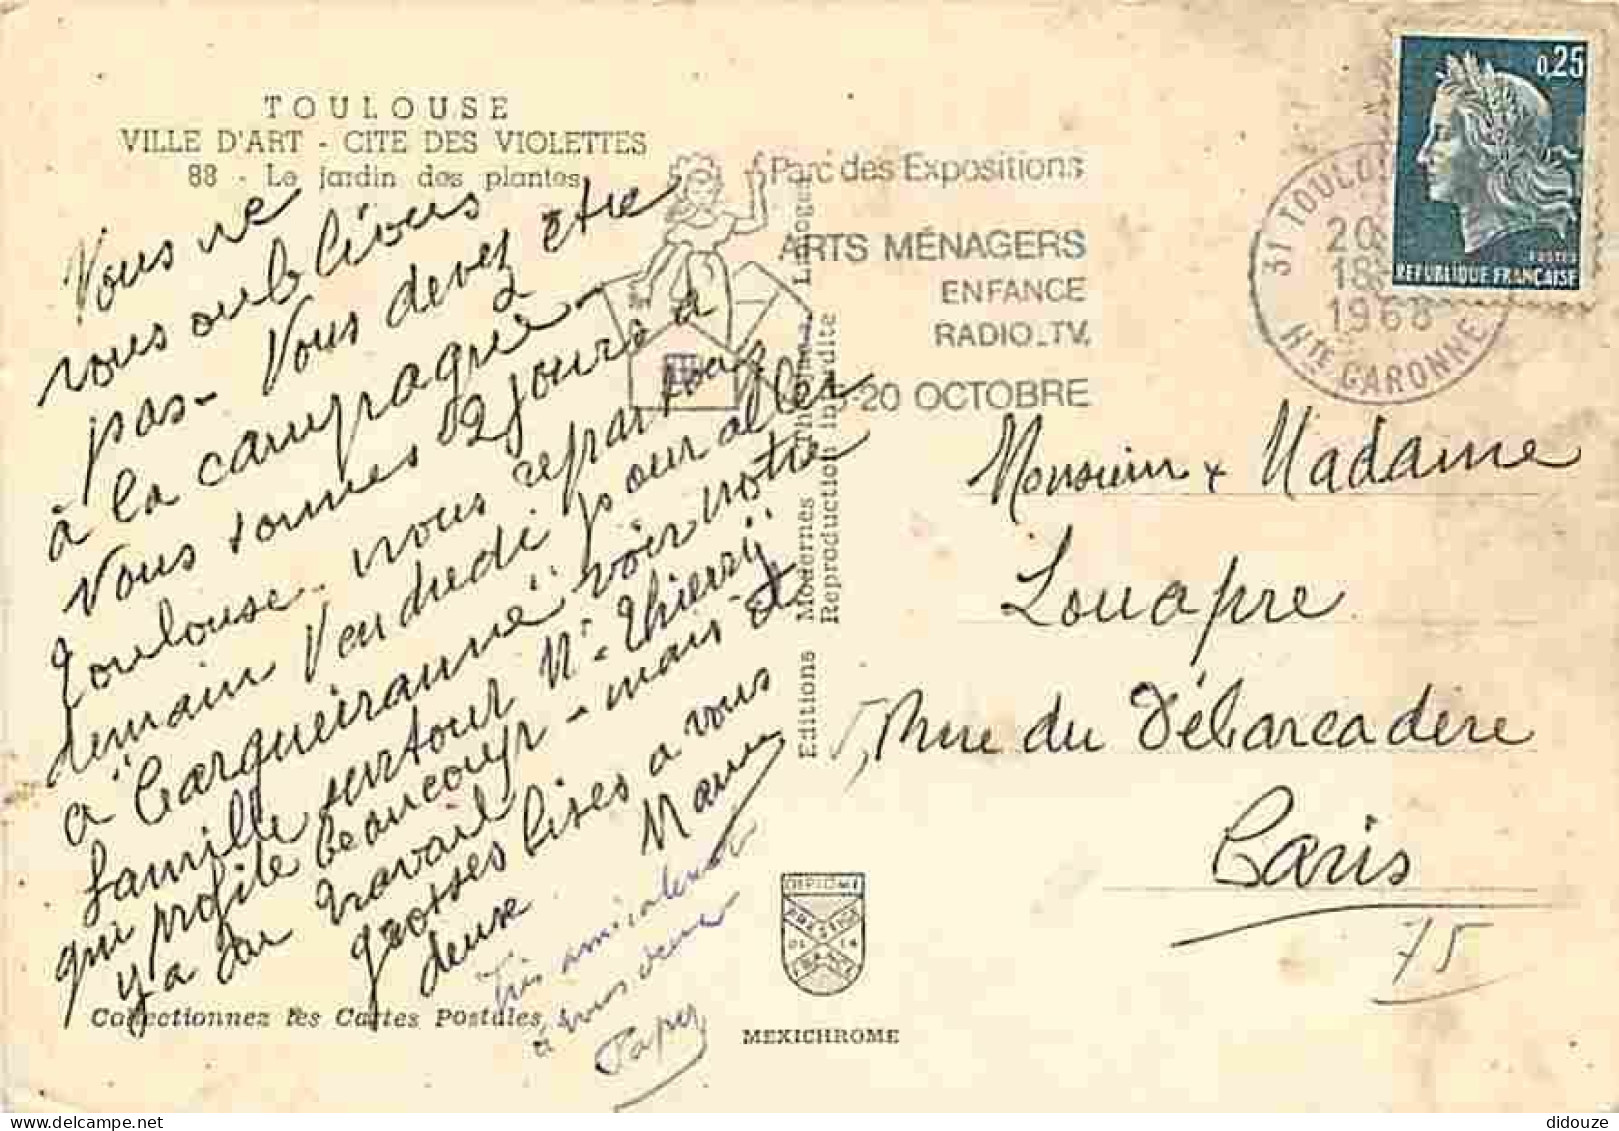 TOULOUSE
VILLE D'ART - CITE DES VIOLETTES
88 - Le jardin des plantes
Vous ne
vous oublions
pas - Vous devez être
à la campagne -
Nous sommes 2 jours à
Toulouse - nous repartons
demain Vendredi pour aller
à "Carqueiranne" voir notre
famille surtout Mr. "Thierry"
qui profite beaucoup - mais il
y a du travail
grosses bises à vous
deux. Maman
Très amicalement
à vous deux
Papy
Collectionnez les Cartes Postales
Editions Modernes Théojac, Limoges
Reproduction interdite
MEXICHROME
DIPLOME
PRESTIGE
DE LA
FRANCE
Parc des Expositions
ARTS MÉNAGERS
ENFANCE
RADIO_TV.
-20 OCTOBRE
31 TOULOU
20
18
1968
HTE GARONNE
0,25
POSTES
REPUBLIQUE FRANÇAISE
Monsieur & Madame
Louapre
5, Rue du Débarcadère
Paris
75
didouze
delcampe.net